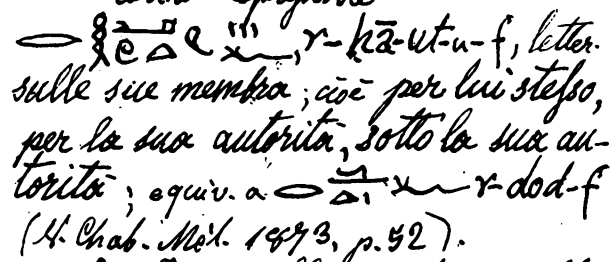 r-hā-ut-u-f, letter.
sulle sue membra; cioè per lui stesso,
per la sua autorità, sotto la sua au-
torità; equiv. a r-dod-f
(V. Chab. Mél. 1873, p. 52).